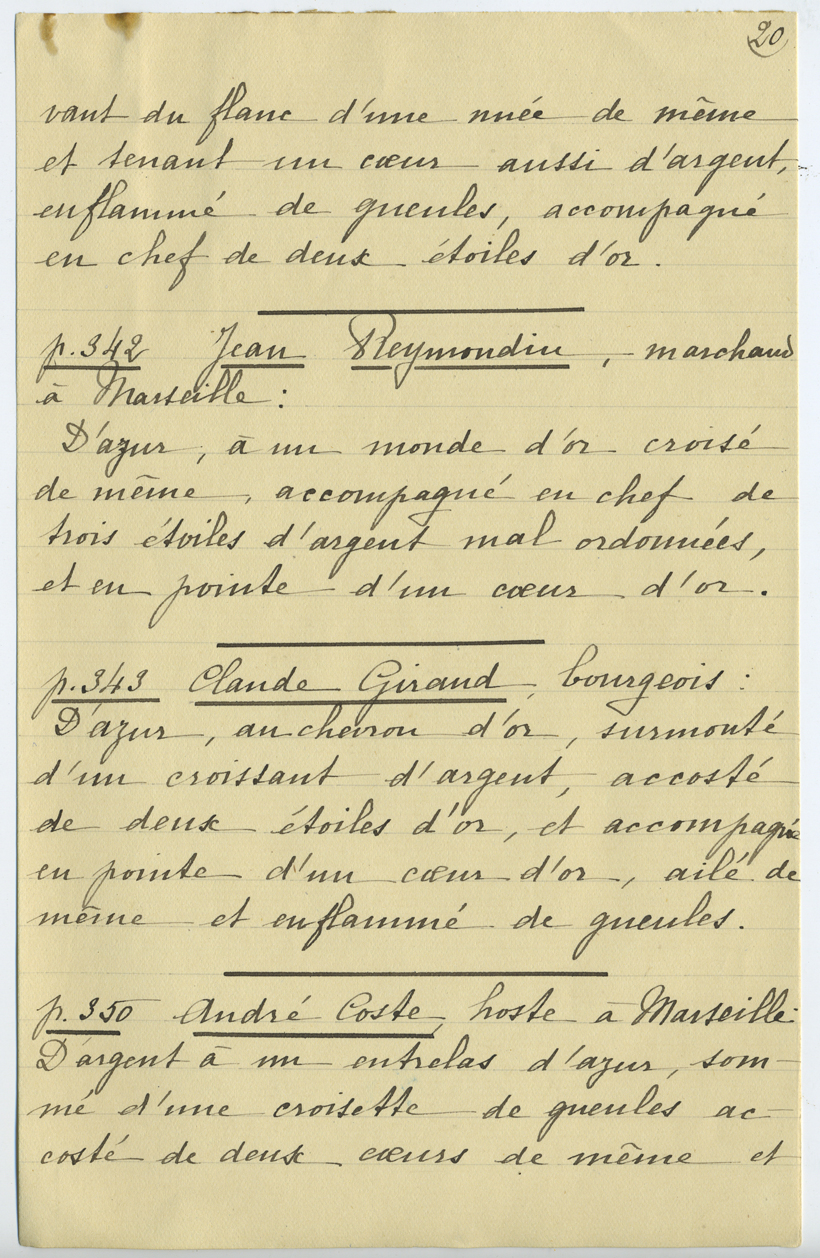 20
vant du flanc d'une nuée de même
et tenant un cœur aussi d'argent,
enflammé de gueules, accompagné
en chef de deux étoiles d'or.
p.342 Jean Reymondin, marchand
à Marseille :
D'azur, à un monde d'or croisé
de même, accompagné en chef de
trois étoiles d'argent mal ordonnées,
et en pointe d'un cœur d'or.
p.343 Claude Giraud, bourgeois :
D'azur, au chevron d'or, surmonté
d'un croissant d'argent, accosté
de deux étoiles d'or, et accompagné
en pointe d'un cœur d'or, ailé de
même et enflammé de gueules.
p.350 André Coste, hoste à Marseille:
D'argent à un entrelas d'azur, som-
mé d'une croisette de gueules ac-
costé de deux cœurs de même et